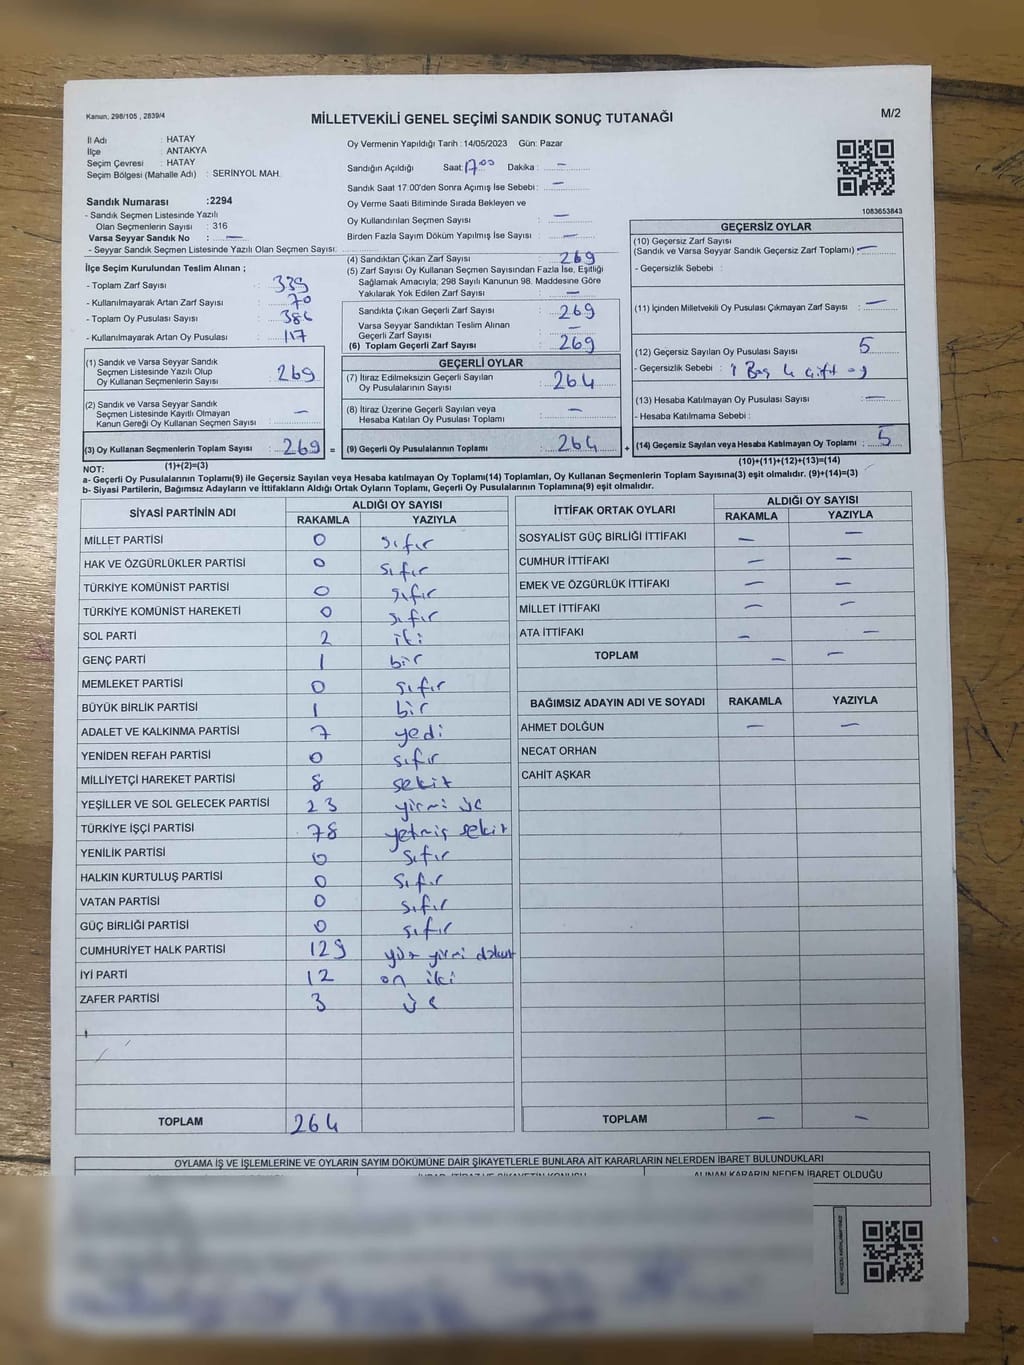 Kanun, 298/105 , 2839/4
MİLLETVEKİLİ GENEL SEÇİMİ SANDIK SONUÇ TUTANAĞI
M/2
İl Adı : HATAY
İlçe : ANTAKYA
Seçim Çevresi : HATAY
Seçim Bölgesi (Mahalle Adı) : SERİNYOL MAH.
Oy Vermenin Yapıldığı Tarih : 14/05/2023 Gün: Pazar
Sandığın Açıldığı Saat: 17.00 Dakika : —
Sandık Saat 17:00'den Sonra Açımış İse Sebebi : —
Oy Verme Saati Bitiminde Sırada Bekleyen ve
Oy Kullandırılan Seçmen Sayısı : —
Birden Fazla Sayım Döküm Yapılmış İse Sayısı : —
Sandık Numarası :2294
- Sandık Seçmen Listesinde Yazılı
Olan Seçmenlerin Sayısı : 316
Varsa Seyyar Sandık No : —
- Seyyar Sandık Seçmen Listesinde Yazılı Olan Seçmen Sayısı:
İlçe Seçim Kurulundan Teslim Alınan ;
- Toplam Zarf Sayısı : 339
- Kullanılmayarak Artan Zarf Sayısı : 70
- Toplam Oy Pusulası Sayısı : 386
- Kullanılmayarak Artan Oy Pusulası : 117
(1) Sandık ve Varsa Seyyar Sandık
Seçmen Listesinde Yazılı Olup
Oy Kullanan Seçmenlerin Sayısı : 269
(2) Sandık ve Varsa Seyyar Sandık
Seçmen Listesinde Kayıtlı Olmayan
Kanun Gereği Oy Kullanan Seçmen Sayısı : —
(3) Oy Kullanan Seçmenlerin Toplam Sayısı : 269 =
(1)+(2)=(3)
(4) Sandıktan Çıkan Zarf Sayısı : 269
(5) Zarf Sayısı Oy Kullanan Seçmen Sayısından Fazla İse, Eşitliği
Sağlamak Amacıyla; 298 Sayılı Kanunun 98. Maddesine Göre
Yakılarak Yok Edilen Zarf Sayısı : —
Sandıkta Çıkan Geçerli Zarf Sayısı : 269
Varsa Seyyar Sandıktan Teslim Alınan
Geçerli Zarf Sayısı : —
(6) Toplam Geçerli Zarf Sayısı : 269
GEÇERLİ OYLAR
(7) İtiraz Edilmeksizin Geçerli Sayılan
Oy Pusulalarının Sayısı : 264
(8) İtiraz Üzerine Geçerli Sayılan veya
Hesaba Katılan Oy Pusulası Toplamı : —
(9) Geçerli Oy Pusulalarının Toplamı : 264 +
1083653843
GEÇERSİZ OYLAR
(10) Geçersiz Zarf Sayısı
(Sandık ve Varsa Seyyar Sandık Geçersiz Zarf Toplamı) : —
- Geçersizlik Sebebi :
(11) İçinden Milletvekili Oy Pusulası Çıkmayan Zarf Sayısı : —
(12) Geçersiz Sayılan Oy Pusulası Sayısı : 5
- Geçersizlik Sebebi : 1 Boş 4 çift oy
(13) Hesaba Katılmayan Oy Pusulası Sayısı : —
- Hesaba Katılmama Sebebi :
(14) Geçersiz Sayılan veya Hesaba Katılmayan Oy Toplamı : 5
(10)+(11)+(12)+(13)=(14)
NOT:
a- Geçerli Oy Pusulalarının Toplamı(9) ile Geçersiz Sayılan veya Hesaba katılmayan Oy Toplamı(14) Toplamları, Oy Kullanan Seçmenlerin Toplam Sayısına(3) eşit olmalıdır. (9)+(14)=(3)
b- Siyasi Partilerin, Bağımsız Adayların ve İttifakların Aldığı Ortak Oyların Toplamı, Geçerli Oy Pusulalarının Toplamına(9) eşit olmalıdır.
SİYASİ PARTİNİN ADI ALDIĞI OY SAYISI
RAKAMLA YAZIYLA
MİLLET PARTİSİ 0 sıfır
HAK VE ÖZGÜRLÜKLER PARTİSİ 0 sıfır
TÜRKİYE KOMÜNİST PARTİSİ 0 sıfır
TÜRKİYE KOMÜNİST HAREKETİ 0 sıfır
SOL PARTİ 2 iki
GENÇ PARTİ 1 bir
MEMLEKET PARTİSİ 0 sıfır
BÜYÜK BİRLİK PARTİSİ 1 bir
ADALET VE KALKINMA PARTİSİ 7 yedi
YENİDEN REFAH PARTİSİ 0 sıfır
MİLLİYETÇİ HAREKET PARTİSİ 8 sekiz
YEŞİLLER VE SOL GELECEK PARTİSİ 23 yirmi üç
TÜRKİYE İŞÇİ PARTİSİ 78 yetmiş sekiz
YENİLİK PARTİSİ 0 sıfır
HALKIN KURTULUŞ PARTİSİ 0 sıfır
VATAN PARTİSİ 0 sıfır
GÜÇ BİRLİĞİ PARTİSİ 0 sıfır
CUMHURİYET HALK PARTİSİ 129 yüz yirmi dokuz
İYİ PARTİ 12 on iki
ZAFER PARTİSİ 3 üç
TOPLAM 264
İTTİFAK ORTAK OYLARI ALDIĞI OY SAYISI
RAKAMLA YAZIYLA
SOSYALİST GÜÇ BİRLİĞİ İTTİFAKI — —
CUMHUR İTTİFAKI — —
EMEK VE ÖZGÜRLÜK İTTİFAKI — —
MİLLET İTTİFAKI — —
ATA İTTİFAKI — —
TOPLAM — —
BAĞIMSIZ ADAYIN ADI VE SOYADI RAKAMLA YAZIYLA
AHMET DOLĞUN — —
NECAT ORHAN
CAHİT AŞKAR
TOPLAM — —
OYLAMA İŞ VE İŞLEMLERİNE VE OYLARIN SAYIM DÖKÜMÜNE DAİR ŞİKAYETLERLE BUNLARA AİT KARARLARIN NELERDEN İBARET BULUNDUKLARI
ALINAN KARARIN NEDEN İBARET OLDUĞU